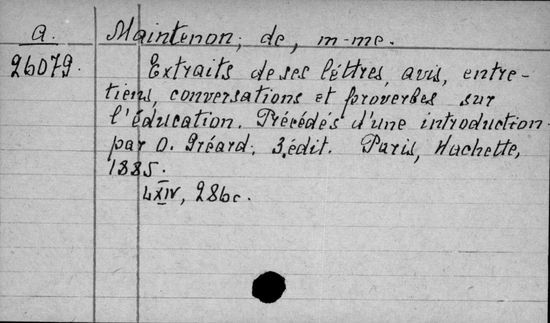 a. Maintenon, de, m-me.
26079. Extraits de ses léttres, avis, entre-
tiens, conversations et proverbes sur
l'éducation. Précédés d'une introduction
par O. Gréard. 3. édit. Paris, Hachette,
1885.
LXIV, 286c.